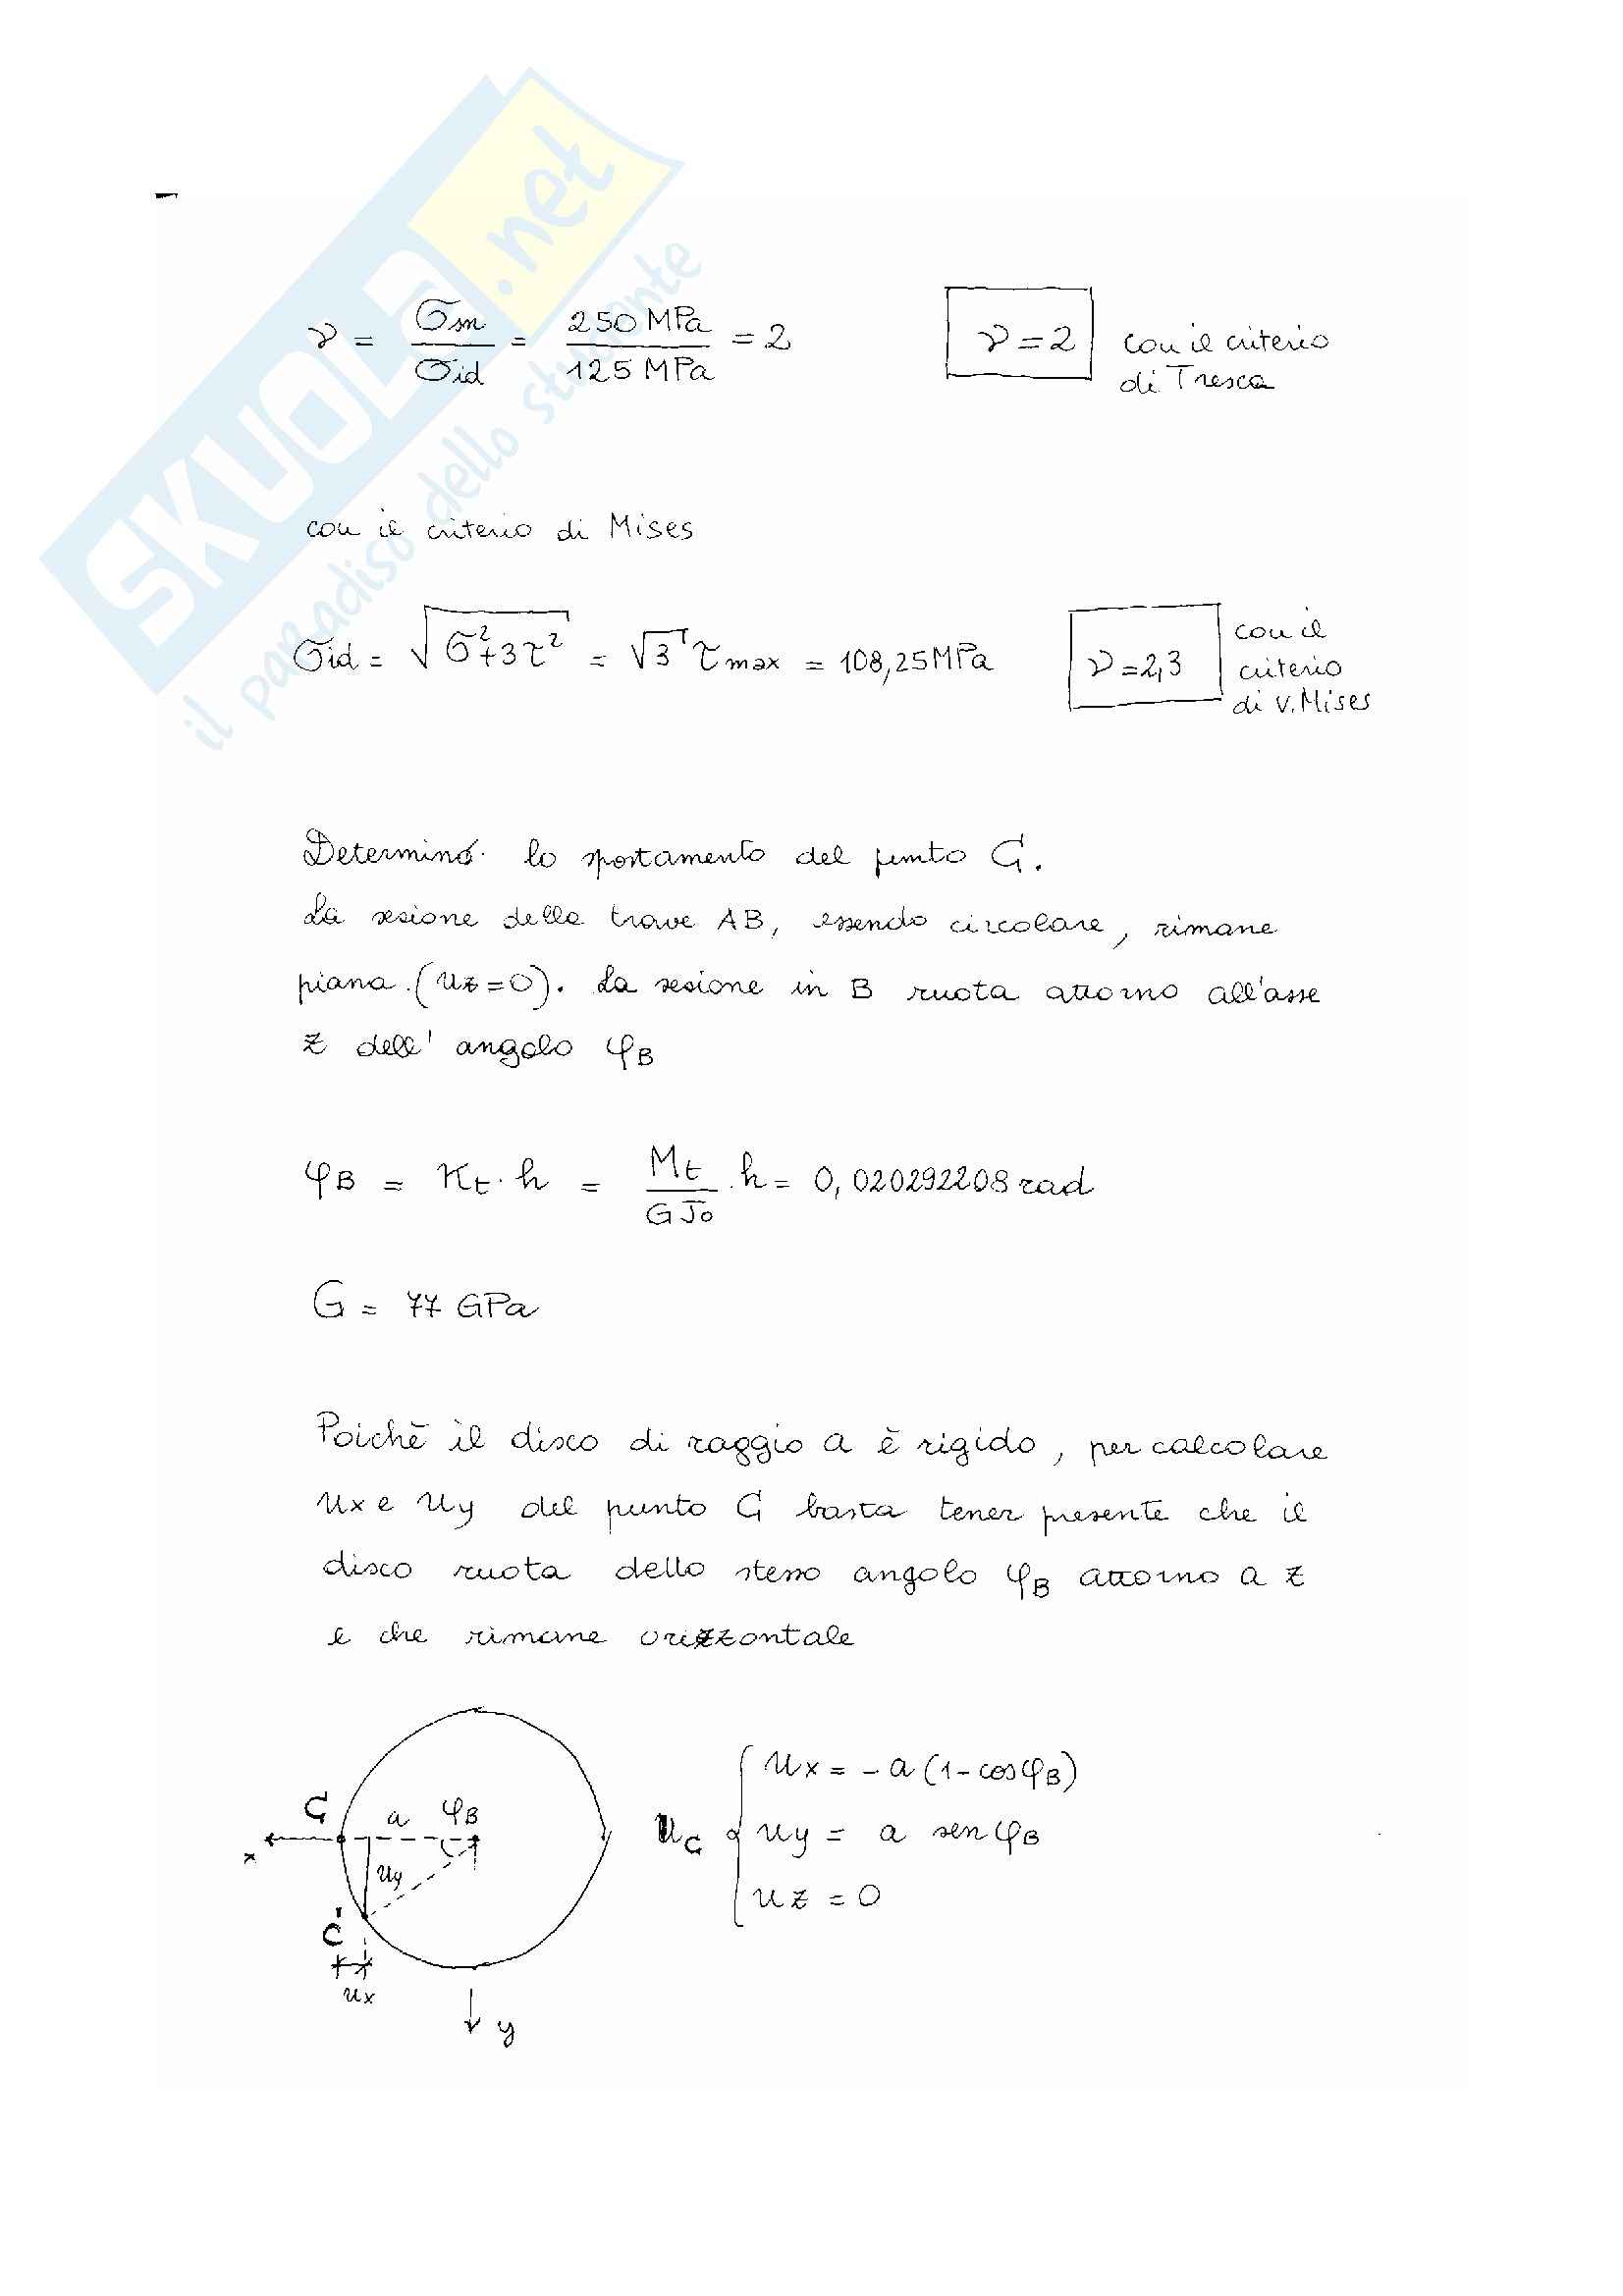 SKUOLA.net
il paradiso dello studente
ν = σm / σid = 250 MPa / 125 MPa = 2
ν = 2 con il criterio di Tresca
con il criterio di Mises
σid = √(σ² + 3τ²) = √3 τmax = 108,25 MPa
ν = 2,3 con il criterio di V. Mises
Determino lo spostamento del punto C.
La sezione della trave AB, essendo circolare, rimane
piana (uz = 0). La sezione in B ruota attorno all'asse
z dell'angolo φB
φB = κt · h = Mt / GJo · h = 0,020292208 rad
G = 77 GPa
Poichè il disco di raggio a è rigido, per calcolare
ux e uy del punto C basta tener presente che il
disco ruota dello stesso angolo φB attorno a z
e che rimane orizzontale
C a φB
x
uy
C'
ux
y
uC
ux = -a (1 - cosφB)
uy = a senφB
uz = 0